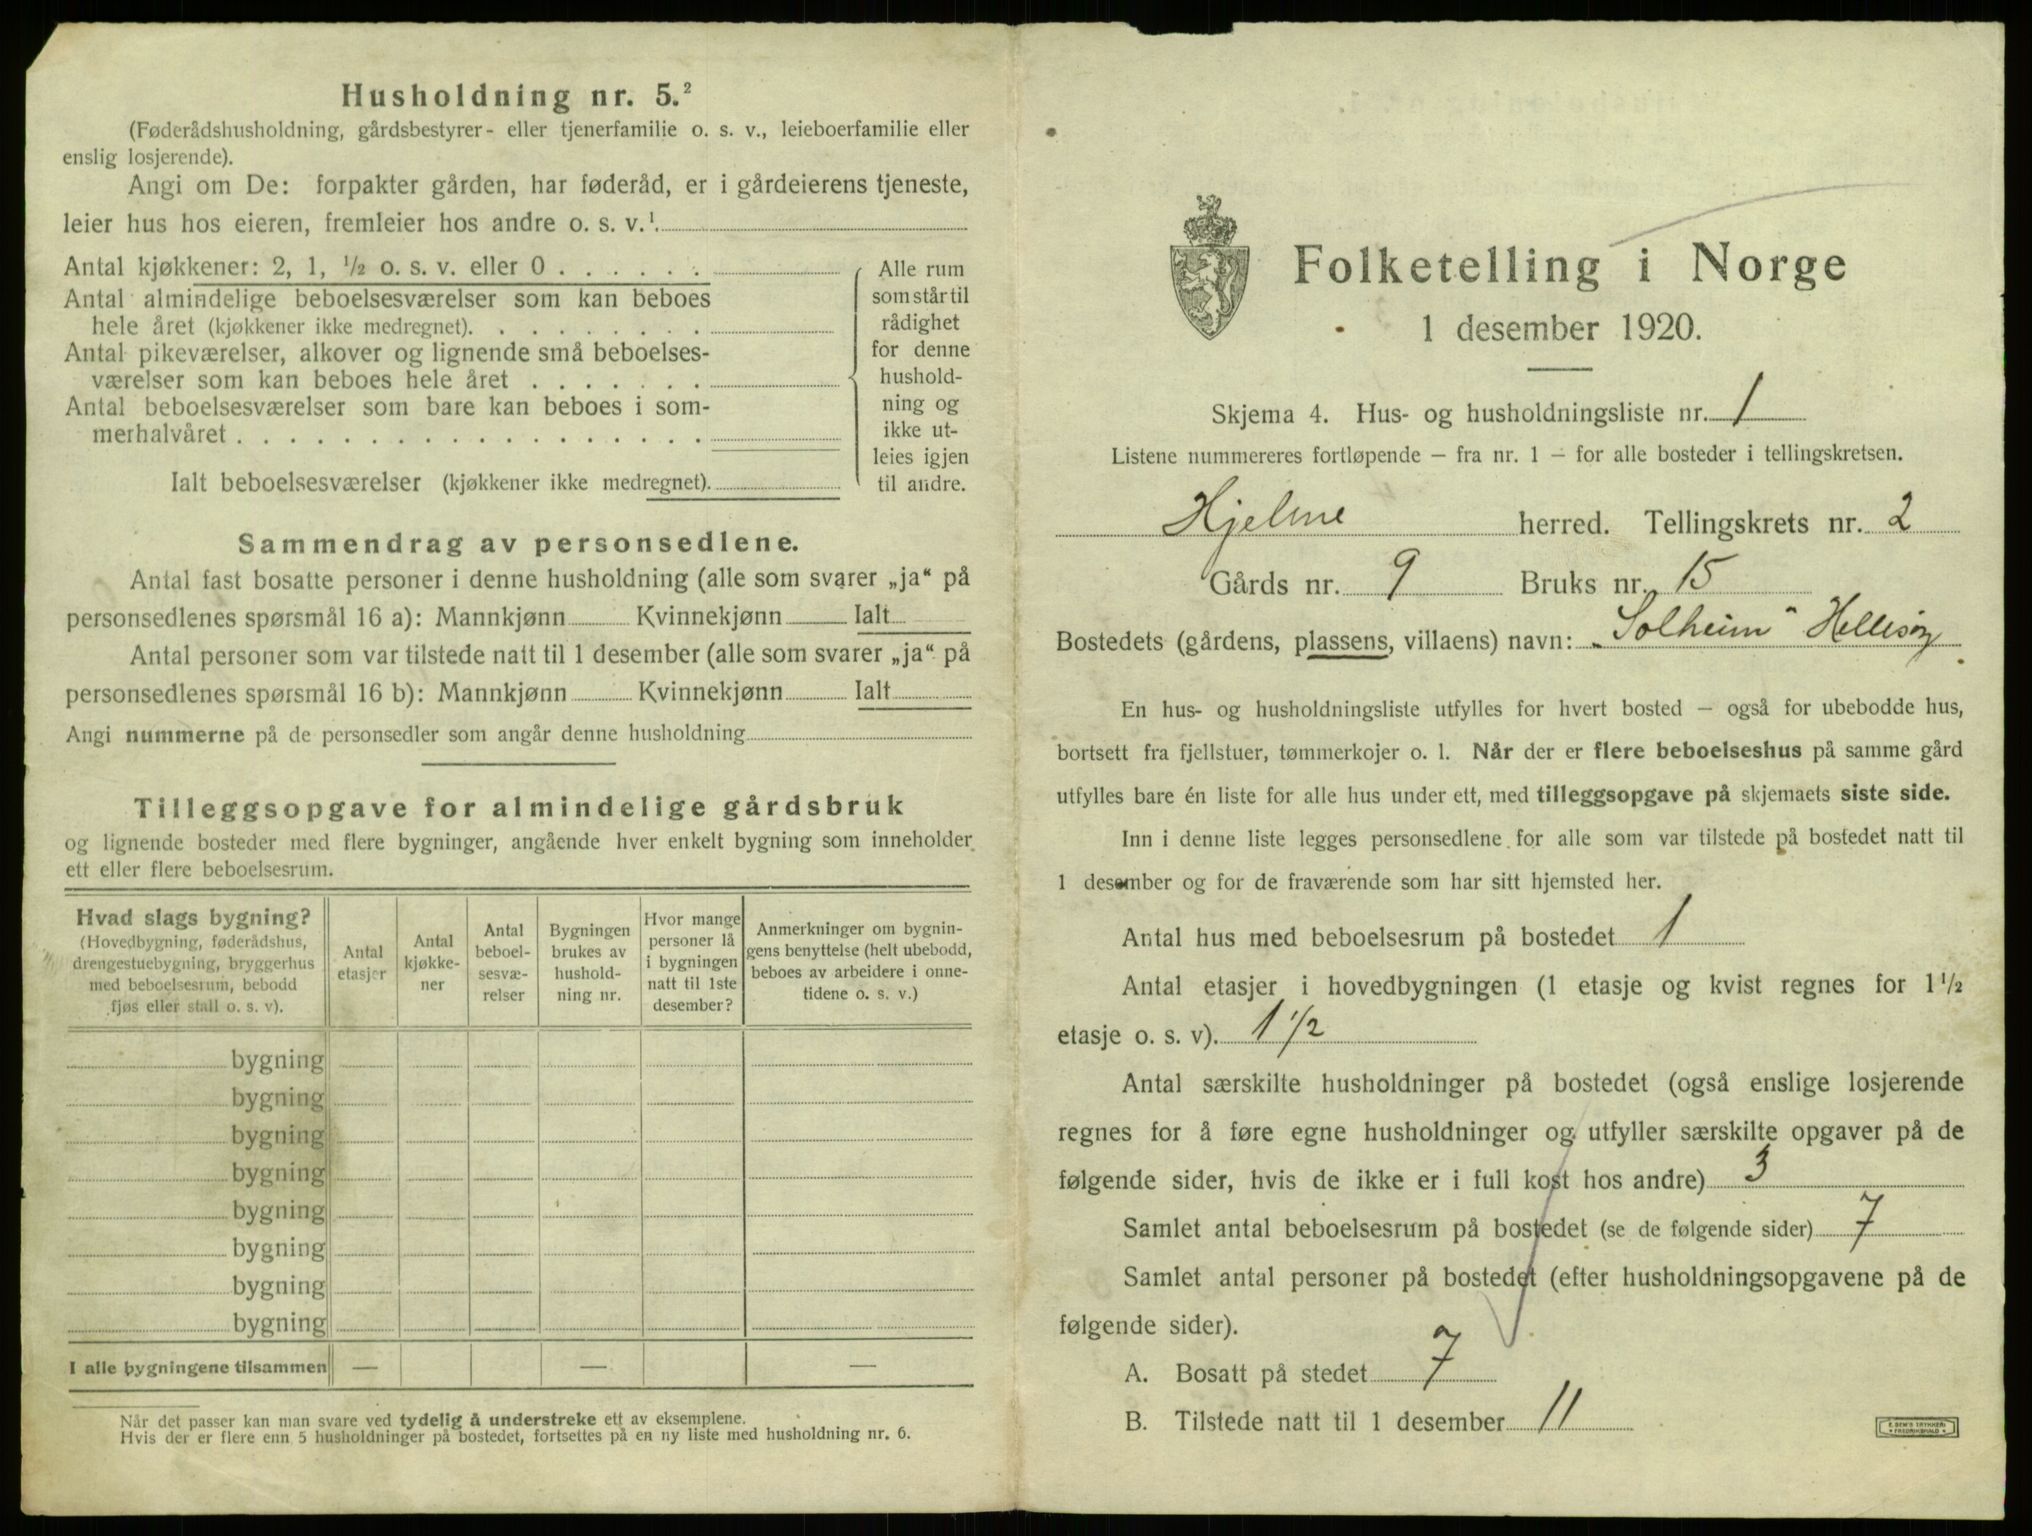 Husholdning nr. 5.²
(Føderådshusholdning, gårdsbestyrer- eller tjenerfamilie o. s. v., leieboerfamilie eller
enslig losjerende).
Angi om De: forpakter gården, har føderåd, er i gårdeierens tjeneste,
leier hus hos eieren, fremleier hos andre o. s. v.¹.
Antal kjøkkener: 2, 1, ½ o. s. v. eller 0 . . . . . .
Antal almindelige beboelsesværelser som kan beboes
hele året (kjøkkener ikke medregnet). . . . . . . . .
Antal pikeværelser, alkover og lignende små beboelses-
værelser som kan beboes hele året . . . . . . .
Antal beboelsesværelser som bare kan beboes i som-
merhalvåret . . . . . . . . . . . . . . . . . .
Ialt beboelsesværelser (kjøkkener ikke medregnet).
Alle rum
som står til
rådighet
for denne
hushold-
ning og
ikke ut-
leies igjen
til andre.
Sammendrag av personsedlene.
Antal fast bosatte personer i denne husholdning (alle som svarer „ja“ på
personsedlenes spørsmål 16 a): Mannkjønn Kvinnekjønn Ialt
Antal personer som var tilstede natt til 1 desember (alle som svarer „ja“ på
personsedlenes spørsmål 16 b): Mannkjønn Kvinnekjønn Ialt
Angi nummerne på de personsedler som angår denne husholdning
Tilleggsopgave for almindelige gårdsbruk
og lignende bosteder med flere bygninger, angående hver enkelt bygning som inneholder
ett eller flere beboelsesrum.
Hvad slags bygning?
(Hovedbygning, føderådshus,
drengestuebygning, bryggerhus
med beboelsesrum, bebodd
fjøs eller stall o. s. v).
Antal
etasjer
Antal
kjøkke-
ner
Antal
beboel-
sesvæ-
relser
Bygningen
brukes av
hushold-
ning nr.
Hvor mange
personer lå
i bygningen
natt til 1ste
desember?
Anmerkninger om bygnin-
gens benyttelse (helt ubebodd,
beboes av arbeidere i onne-
tidene o. s. v.)
bygning
bygning
bygning
bygning
bygning
bygning
bygning
bygning
I alle bygningene tilsammen — — —
Når det passer kan man svare ved tydelig å understreke ett av eksemplene.
Hvis der er flere enn 5 husholdninger på bostedet, fortsettes på en ny liste med husholdning nr. 6.
Folketelling i Norge
1 desember 1920.
Skjema 4. Hus- og husholdningsliste nr. 1
Listene nummereres fortløpende – fra nr. 1 – for alle bosteder i tellingskretsen.
Hjelme herred. Tellingskrets nr. 2
Gårds nr. 9 Bruks nr. 15
Bostedets (gårdens, plassens, villaens) navn: „Solheim“ Hellisøy
En hus- og husholdningsliste utfylles for hvert bosted – også for ubebodde hus,
bortsett fra fjellstuer, tømmerkojer o. l. Når der er flere beboelseshus på samme gård
utfylles bare én liste for alle hus under ett, med tilleggsopgave på skjemaets siste side.
Inn i denne liste legges personsedlene for alle som var tilstede på bostedet natt til
1 desember og for de fraværende som har sitt hjemsted her.
Antal hus med beboelsesrum på bostedet 1
Antal etasjer i hovedbygningen (1 etasje og kvist regnes for 1½
etasje o. s. v). 1 1/2
Antal særskilte husholdninger på bostedet (også enslige losjerende
regnes for å føre egne husholdninger og utfyller særskilte opgaver på de
følgende sider, hvis de ikke er i full kost hos andre) 3
Samlet antal beboelsesrum på bostedet (se de følgende sider) 7
Samlet antal personer på bostedet (efter husholdningsopgavene på de
følgende sider).
A. Bosatt på stedet 7
B. Tilstede natt til 1 desember 11
E. SEM'S TRYKKERI
• FREDRIKSHALD •